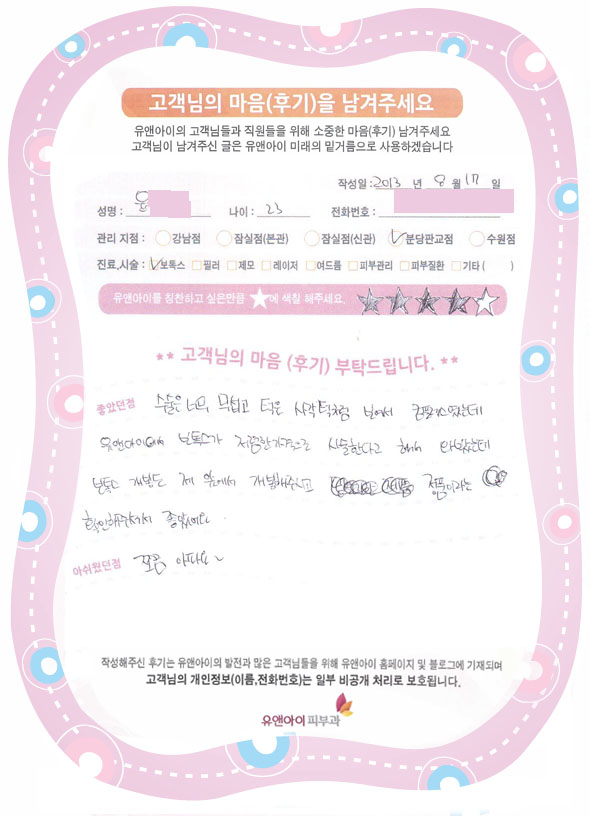 고객님의 마음(후기)을 남겨주세요
유앤아이의 고객님들과 직원들을 위해 소중한 마음(후기) 남겨주세요
고객님이 남겨주신 글은 유앤아이 미래의 밑거름으로 사용하겠습니다
작성일 : 2013 년 8 월 17 일
성명 : 윤 나이 : 23 전화번호 :
관리 지점 : 강남점 잠실점(본관) 잠실점(신관) 분당판교점 수원점
진료,시술 : 보톡스 필러 제모 레이저 여드름 피부관리 피부질환 기타 ( )
유앤아이를 칭찬하고 싶은만큼 ★에 색칠 해주세요.
** 고객님의 마음 (후기) 부탁드립니다. **
좋았던점 수술은 너무 무섭고 턱은 사각턱처럼 보여서 컴플렉스였는데
유앤아이에서 보톡스가 저렴한가격으로 시술한다고 해서 와봤는데
보톡스 개봉도 제 앞에서 개봉해주시고 정품이라는
확인해주셔서 좋았어요.
아쉬웠던점 쪼끔 아파요~
작성해주신 후기는 유앤아이의 발전과 많은 고객님들을 위해 유앤아이 홈페이지 및 블로그에 기재되며
고객님의 개인정보(이름,전화번호)는 일부 비공개 처리로 보호됩니다.
유앤아이피부과